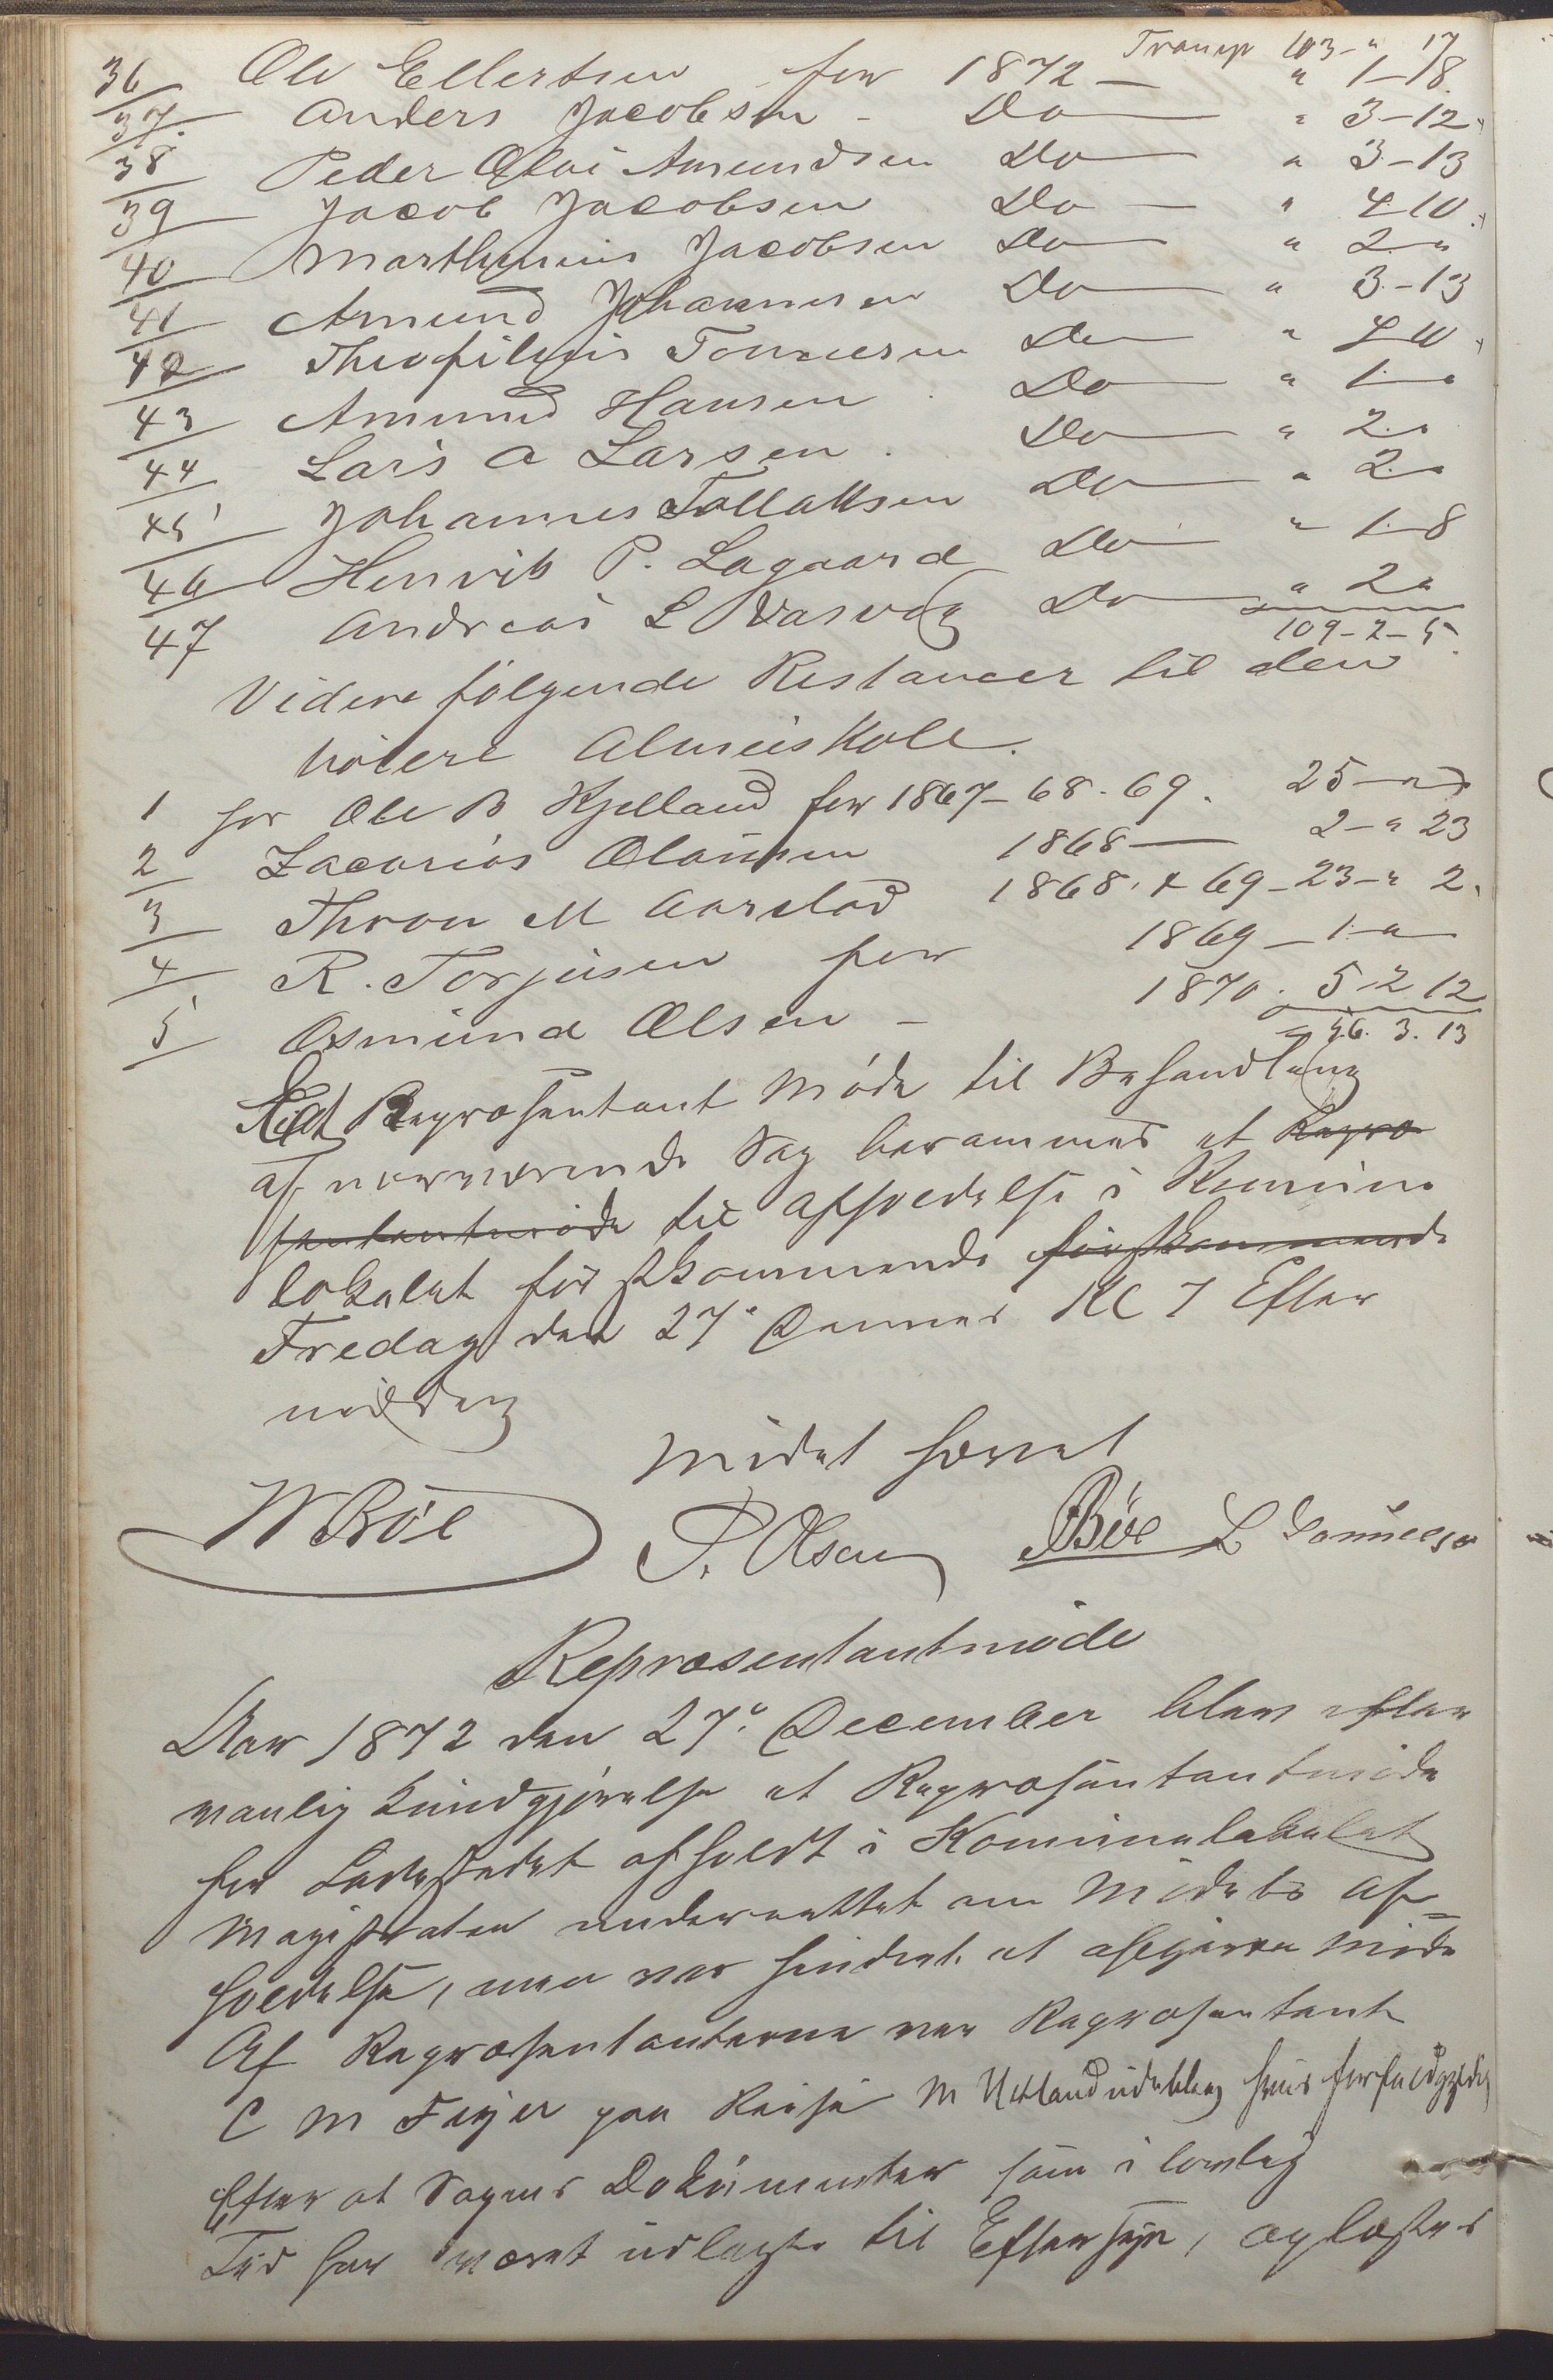 Transp 103 - " 17
36 Ole Ellertsen for 1872 — " 1 - 18
37. Anders Jacobsen - Do — " 3 - 12
38 Peder Olai Amundsen Do — " 3 - 13
39 Jacob Jacobsen Do — " 4 10
40 Marthinius Jacobsen Do — " 2 "
41 Amund Johannesen Do — " 3 - 13
42 Theofilius Tønnesen Do — " 4 10
43 Amund Hansen Do — " 1 "
44 Lars A Larsen Do — " 2 "
45 Johannes Tollaksen Do — " 2 "
46 Henrik P. Lagaard Do — " 1 - 8
47 Andreas L Vasvåg Do — " 2 "
109 - 2 - 5
Videre følgende Restancer til den
høiere Almueskole.
1 for Ole B Kjelland for 1867 - 68 - 69. 25 — " "
2 Zacarias Olaussen 1868 — 2 - " 23
3 Thron M Aarstad 1868. & 69 - 23 - " 2
4 R. Torjusen for 1869 - 1 - "
5 Osmund Olsen - 1870. 5 - 2 12
56. 3. 13
Et Repræsentant Møde til Behandling
af nærværende Sag berammes at Repræ
sentantmøde til Afholdelse i Kommune
lokalet førstkommende førstkommende
Fredag den 27de Dennes Kl 7 Efter
middag
Mødet hævet
W Böe P. Olsen Böe L Danielsen
Repræsentantmöde
Aar 1872 den 27de December blev efter
vanlig Kundgjørelse et Repræsentantmøde
for Ladestedet afholdt i Kommunelokalet
Magistraten underrettet om Mødets Af=
holdelse, men var hindret at afgive Møde
Af Repræsentanterne var Repræsentant
C M Feyer paa Reise M Urtland udeblev
Efter at Sagens Dokumenter som i lovlig
Tid har været udlagte til Eftersyn, oplæstes